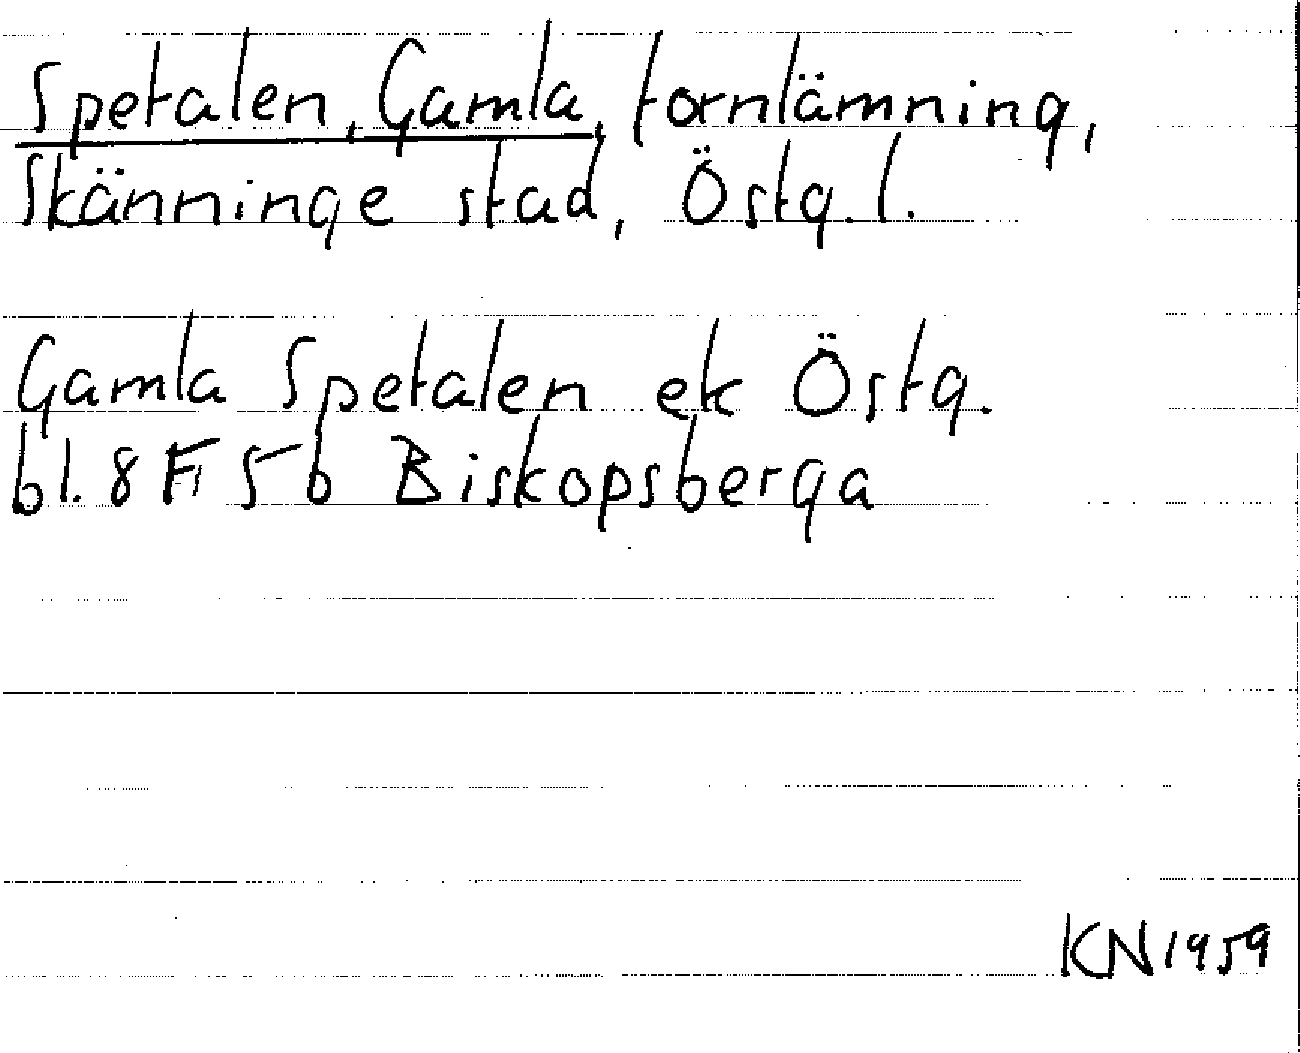 Spetalen, Gamla, fornlämning,
Skänninge stad, Östg. l.
Gamla Spetalen ek Östg.
bl. 8 F 5 b Biskopsberga
KN 1959